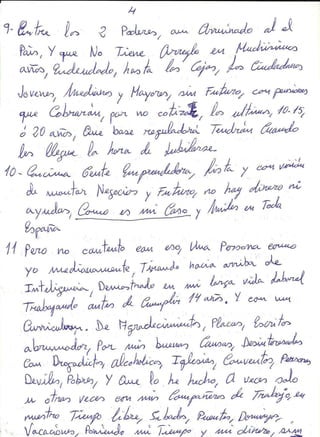 4
9- Entre los 2 Poderes, an Arruinado al el
País, Y que No Tiene Arreglo en Muchísimos
años, Endeudado, hasta las Cejas, Los Ciudadanos
Jovenes, Medianos y Mayores, sin Futuro, con pensiones
que Cobrarán, por no cotizar, los ultimos, 10-15,
ó 20 años, Que base reguladora Tendrán Cuando
les llegue la hora de Jubilarse.
10- Encima Gente Emprendedora, lista y con visión
de montar Negocios y Futuro, no hay dinero ni
ayudas, Como es mi Caso y Miles en Toda
España
11 Pero no contento con eso, Una Persona como
yo medianamente, Tirando hacia arriba de
Inteligencia, Demostrado en mi larga vida laboral
Trabajando antes de Cumplir 14 años, Y con un
Curriculum. De Agradecimientos, Placas, Escritos
abrumador, Por mis buenas Causas, Desinteresadas
Con Drogadictos, Alcoholicos, Iglesias, Conventos, Personas
Deviles, Pobres, Y Que lo he hecho, A veces solo
u otras veces con mis Compañeros de Trabajo, en
nuestro Tiempo libre, Sabados, Puentes, Domingos,
Vacaciones, Poniendo mi Tiempo y mi dinero, sin